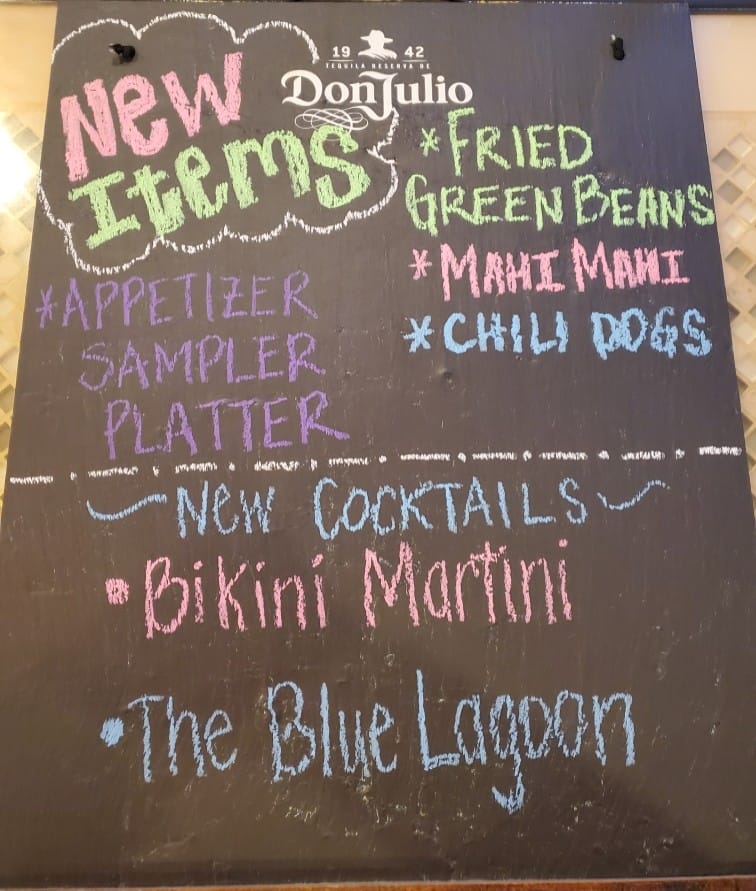 19 42
TEQUILA RESERVA DE
Don Julio
New
Items
*APPETIZER
SAMPLER
PLATTER
*FRIED
GREEN BEANS
*MAHI MAHI
*CHILI DOGS
~NEW COCKTAILS~
•Bikini Martini
•The Blue Lagoon